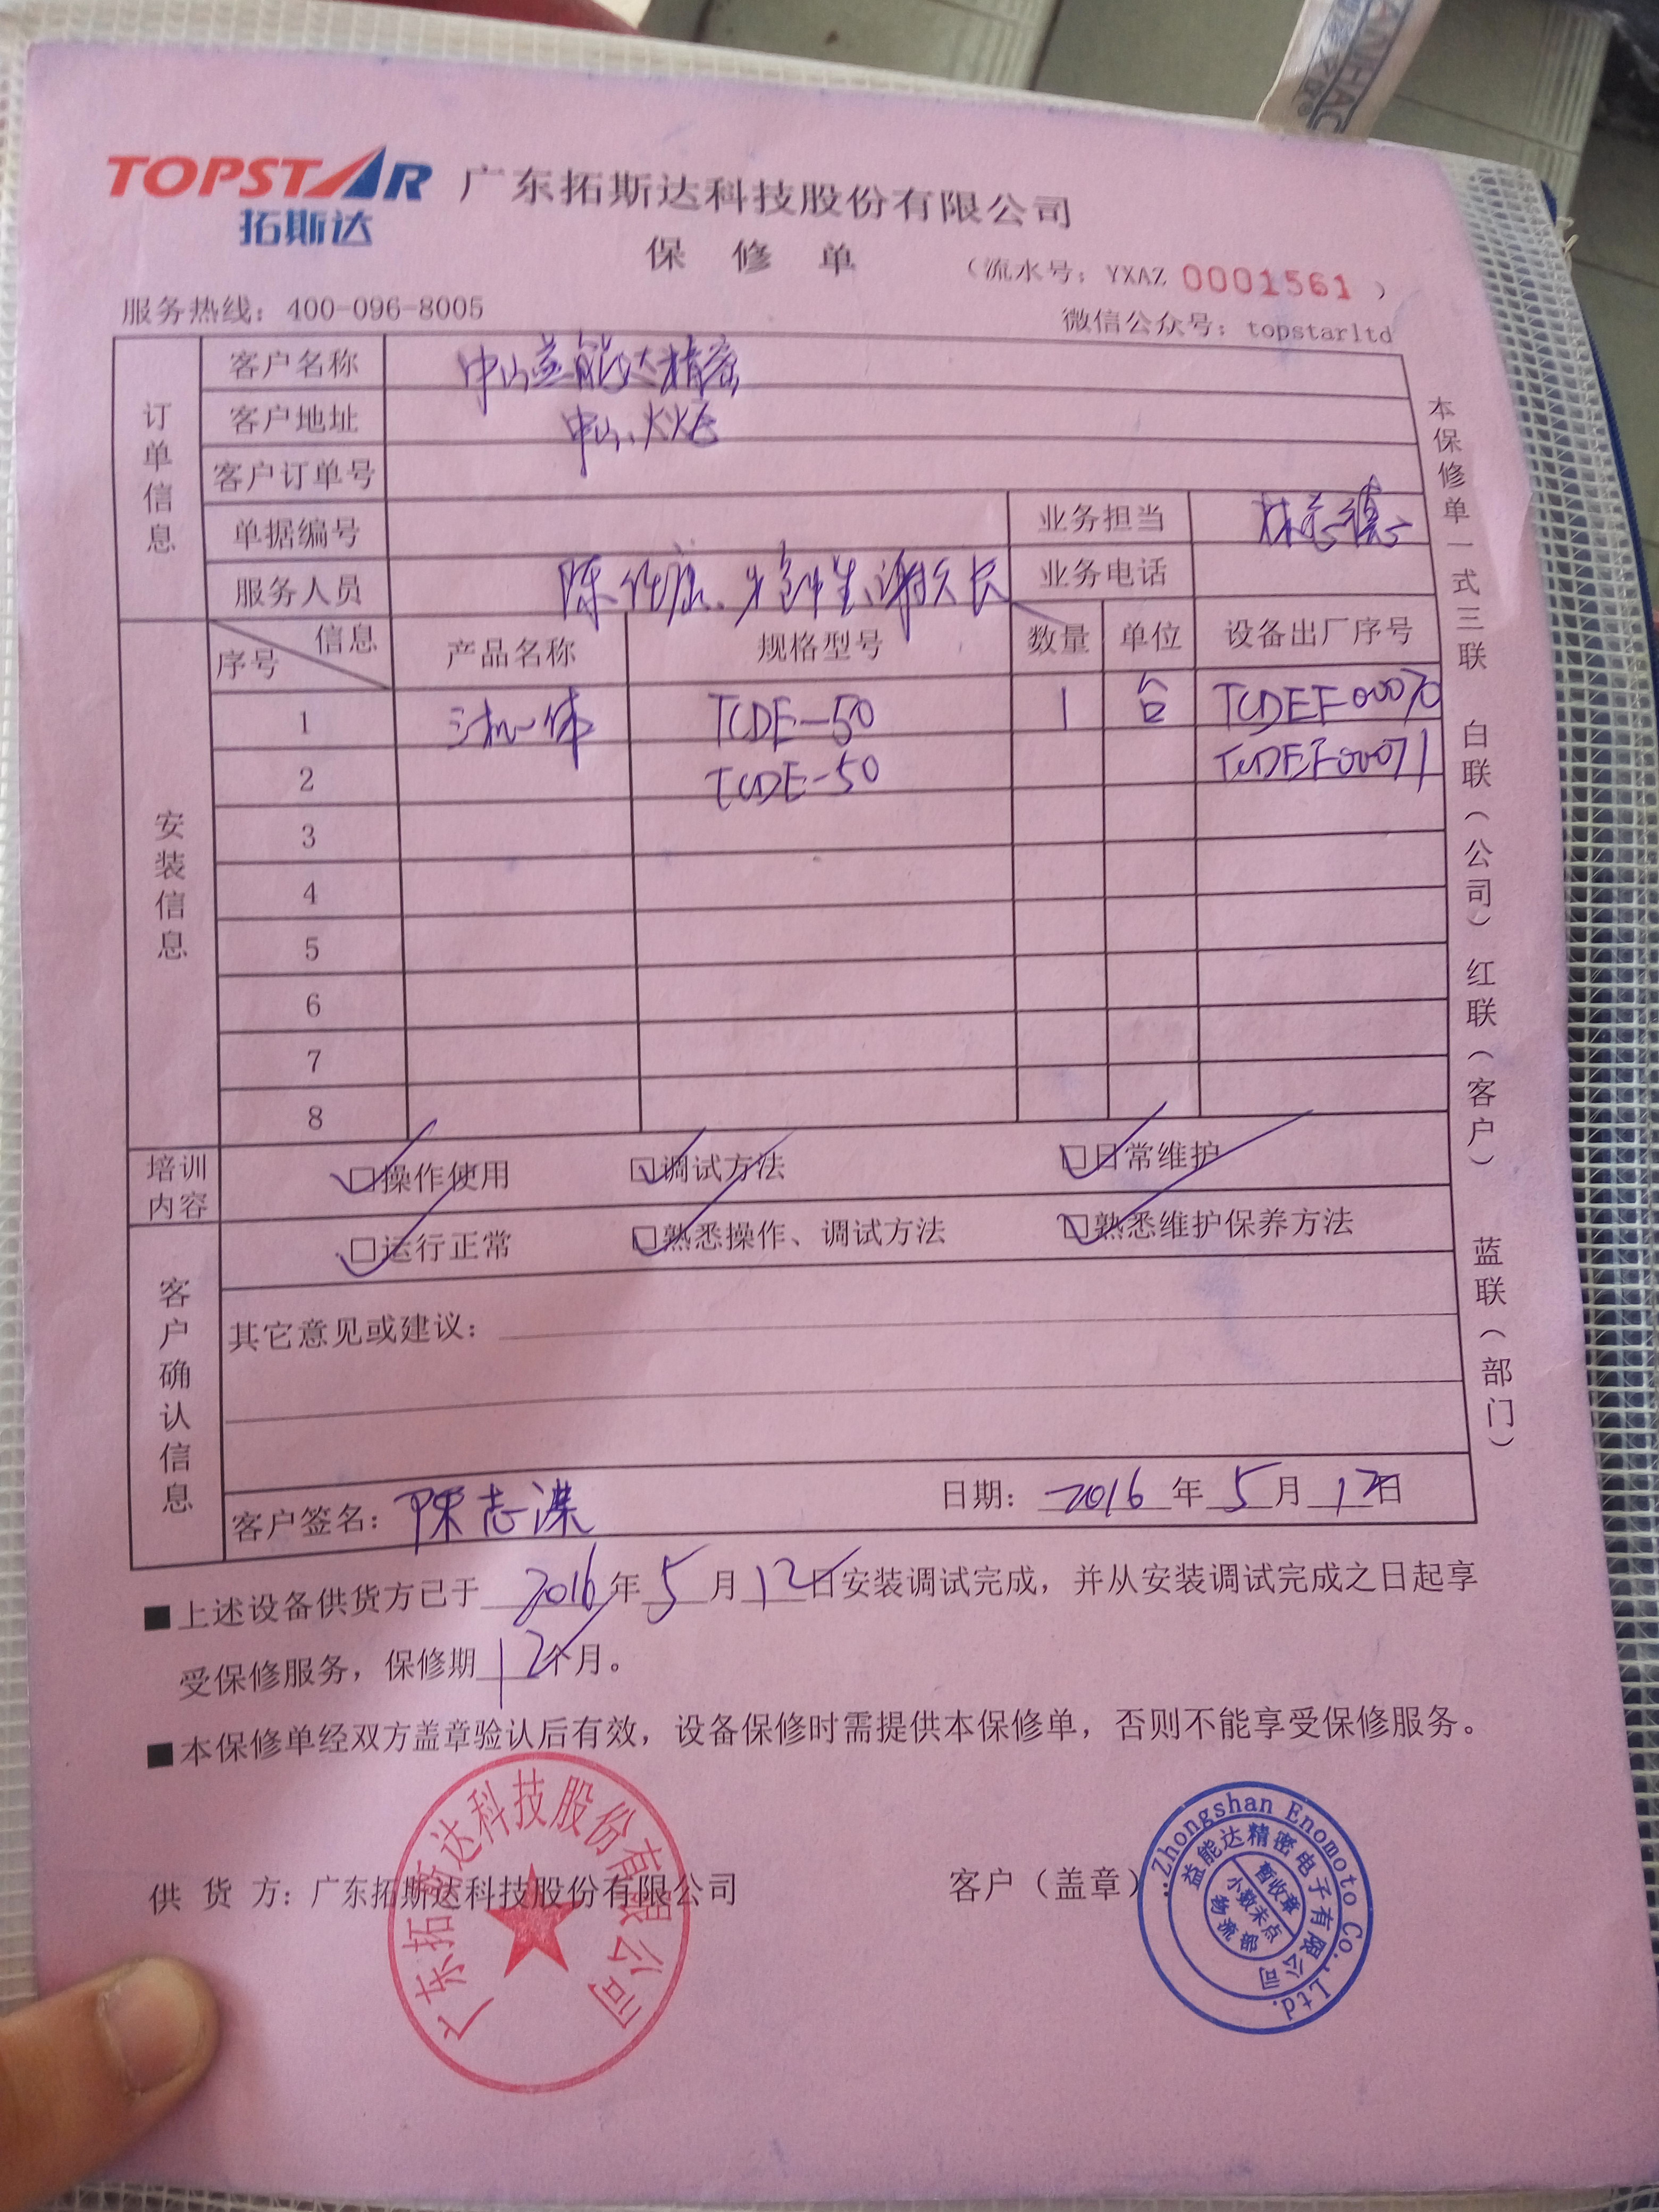 TOPSTAR 广东拓斯达科技股份有限公司
拓斯达
保修单 (流水号: YXAZ 0001561)
服务热线: 400-096-8005 微信公众号: topstarltd
订单信息
客户名称 中山益能达精密
客户地址 中山、火炬
客户订单号
单据编号 业务担当
服务人员 业务电话
安装信息
序号 信息 产品名称 规格型号 数量 单位 设备出厂序号
1 三机一体 TCDE-50 1 台 TCDEF00070
2 TCDE-50 TCDEF00071
3
4
5
6
7
8
培训内容 □操作使用 □调试方法 □日常维护
客户确认信息
□运行正常 □熟悉操作、调试方法 □熟悉维护保养方法
其它意见或建议:
客户签名: 陈志 日期: 2016年5月12日
■上述设备供货方已于2016年5月12日安装调试完成，并从安装调试完成之日起享
受保修服务，保修期12个月。
■本保修单经双方盖章验认后有效，设备保修时需提供本保修单，否则不能享受保修服务。
供货方: 广东拓斯达科技股份有限公司 客户（盖章）
广东拓斯达科技股份有限公司
Zhongshan Enomoto Co., Ltd.
益能达精密电子有限公司
暂收章
小数未点
物流部
本保修单一式三联 白联（公司）红联（客户）蓝联（部门）